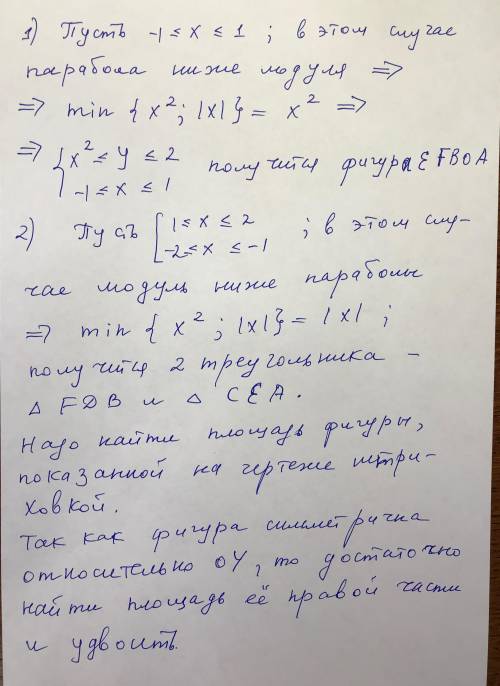 1) Пусть -1 ≤ x ≤ 1 ; в этом случае
парабола ниже модуля ⟹
⟹ min { x² ; |x| } = x² ⟹
⟹ { x² ≤ y ≤ 2
-1 ≤ x ≤ 1 получится фигура EFBOA
2) Пусть [ 1 ≤ x ≤ 2
-2 ≤ x ≤ -1 ; в этом слу-
чае модуль ниже параболы
⟹ min { x² ; |x| } = |x| ;
получится 2 треугольника -
△ FDB и △ CEA.
Надо найти площадь фигуры,
показанной на чертеже штри-
ховкой.
Так как фигура симметрична
относительно OY, то достаточно
найти площадь её правой части
и удвоить.